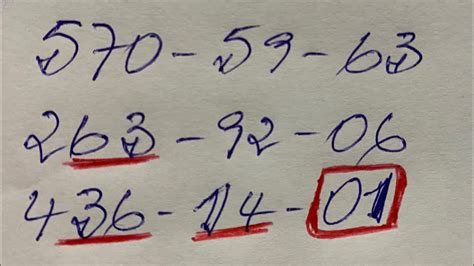 570-59-63
263-92-06
436-14-01